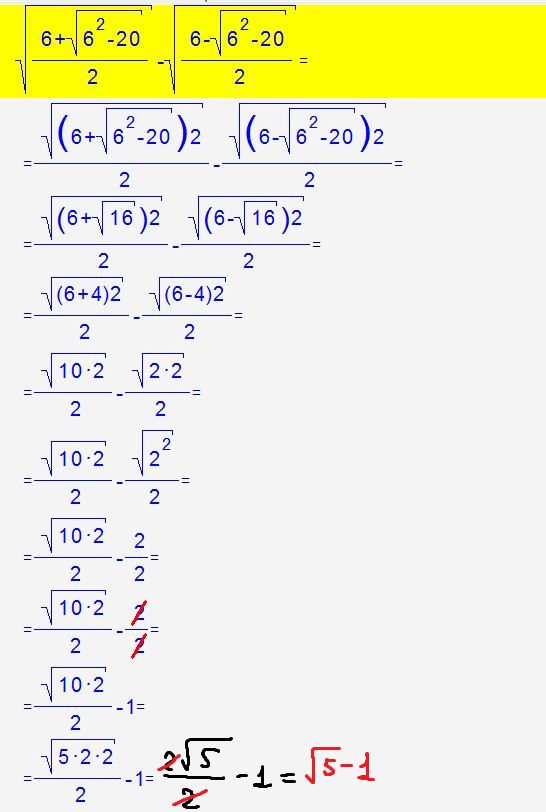 √((6+√(6²-20))/2) -√((6-√(6²-20))/2) =
=√((6+√(6²-20))2)/2 - √((6-√(6²-20))2)/2 =
=√((6+√16)2)/2 - √((6-√16)2)/2 =
=√((6+4)2)/2 - √((6-4)2)/2 =
=√(10·2)/2 - √(2·2)/2 =
=√(10·2)/2 - √(2²)/2 =
=√(10·2)/2 - 2/2 =
=√(10·2)/2 - 2/2 =
=√(10·2)/2 -1=
=√(5·2·2)/2 -1= 2√5/2 -1 = √5-1